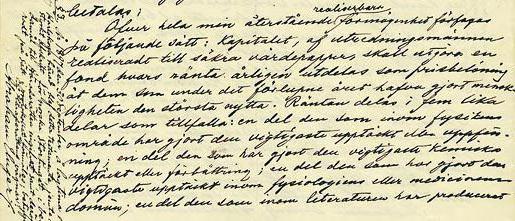 beetalas;
realiserbara
Öfver hela min återstående förmögenhet förfogas
på följande sätt: Kapitalet, af utredningsmännen
realiseradt till säkra värdepapper, skall utgöra en
fond hvars ränta årligen utdelas som prisbelöning
åt dem som under det förlupne året hafva gjort mensk-
ligheten den största nytta. Räntan delas i fem lika
delar som tillfalla: en del den som inom fysikens
område har gjort den vigtigaste upptäckt eller uppfin-
ning; en del den som har gjort den vigtigaste kemiska
upptäckt eller förbättring; en del den som har gjort den
vigtigaste upptäckt inom fysiologiens eller medicinens
domän; en del den som inom literaturen har producerat